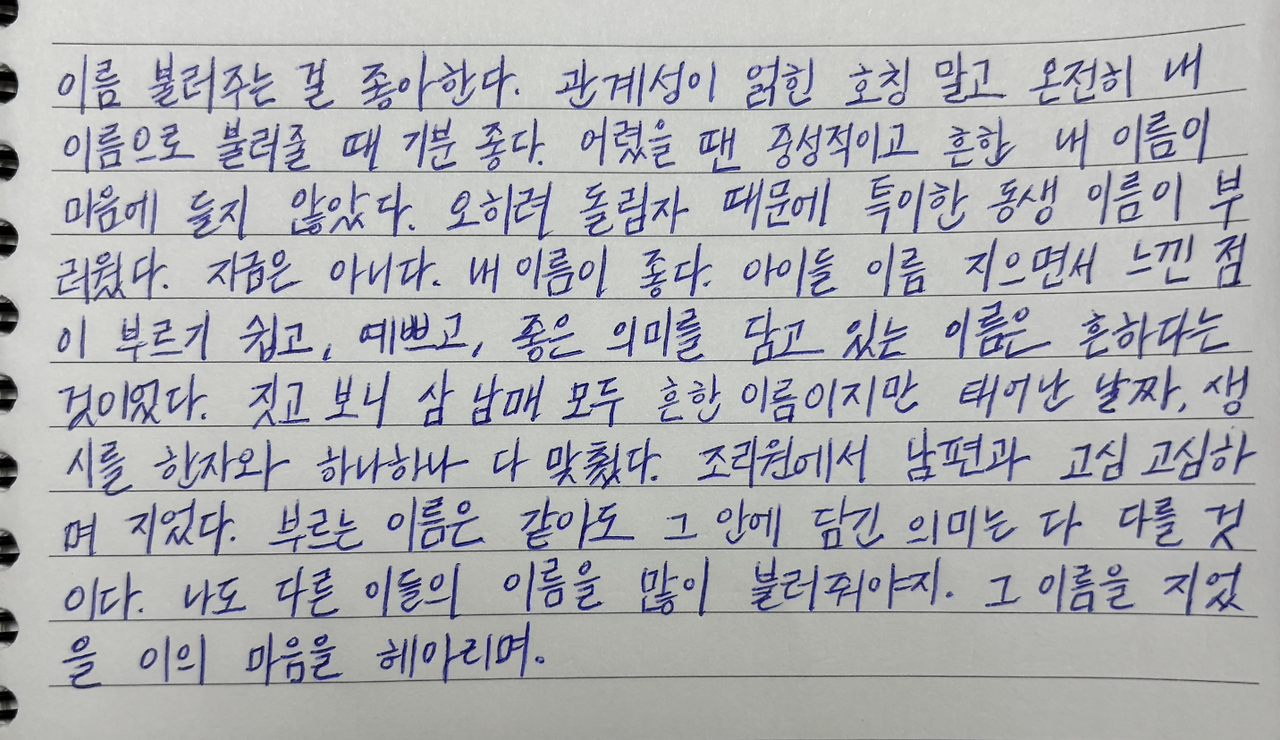 이름 불러주는 걸 좋아한다. 관계성이 얽힌 호칭 말고 온전히 내
이름으로 불러줄 때 기분 좋다. 어렸을 땐 중성적이고 흔한 내 이름이
마음에 들지 않았다. 오히려 돌림자 때문에 특이한 동생 이름이 부
러웠다. 지금은 아니다. 내 이름이 좋다. 아이들 이름 지으면서 느낀 점
이 부르기 쉽고, 예쁘고, 좋은 의미를 담고 있는 이름은 흔하다는
것이었다. 짓고 보니 삼 남매 모두 흔한 이름이지만 태어난 날짜, 생
시를 한자와 하나하나 다 맞췄다. 조리원에서 남편과 고심 고심하
며 지었다. 부르는 이름은 같아도 그 안에 담긴 의미는 다 다를 것
이다. 나도 다른 이들의 이름을 많이 불러줘야지. 그 이름을 지었
을 이의 마음을 헤아리며.